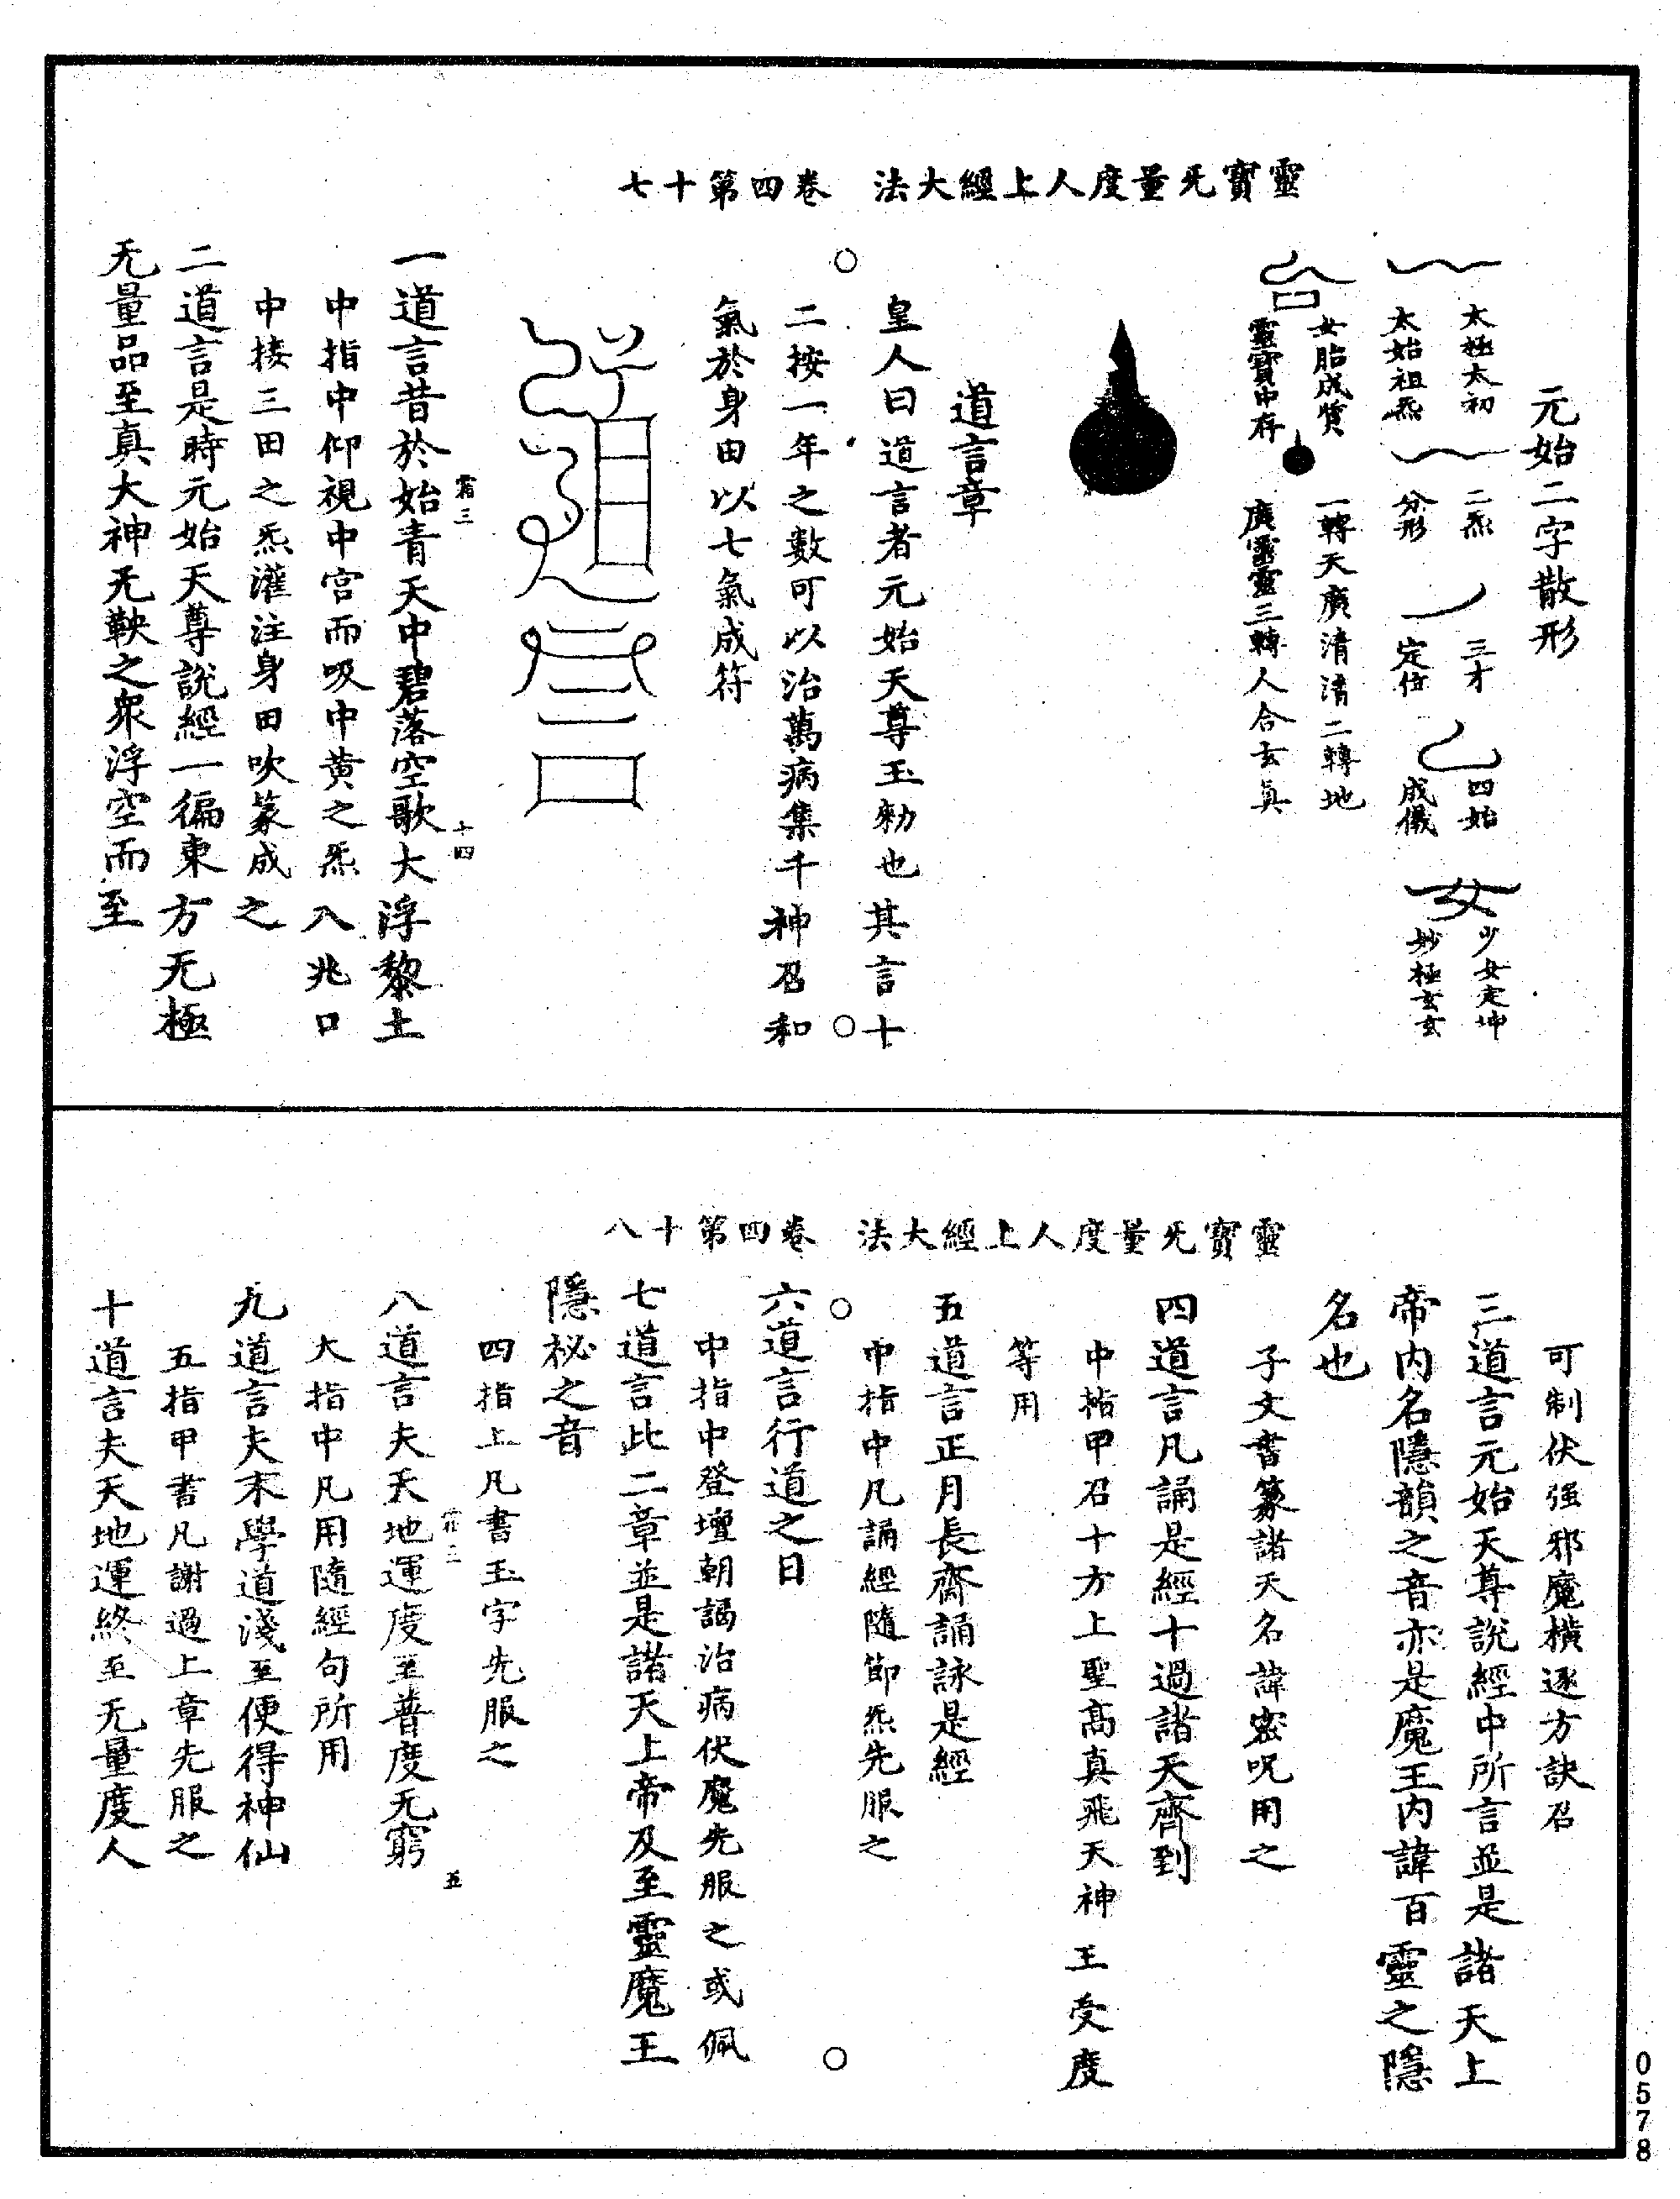 靈寶无量度人上經大法　卷四第十七
元始二字散形
太極太初
太始祖炁
二炁
分形
三才
定位
四始
成儀
少女定坤
妙極玄玄
女胎成質
靈寶中存
一轉天廣清清二轉地
廣靈靈三轉人合玄真
道言章
皇人曰道言者元始天尊玉勑也其言十
二按一年之數可以治萬病集千神召和
氣於身由以七氣成符
一道言昔於始青天中碧落空歌大浮黎土
霜三
十四
中指中仰視中宮而吸中黄之炁入兆口
中接三田之炁灌注身田吹篆成之
二道言是時元始天尊說經一徧東方无極
无量品至真大神无鞅之衆浮空而至
靈寶无量度人上經大法　卷四第十八
可制伏强邪魔橫逐方訣召
三道言元始天尊說經中所言並是諸天上
帝内名隱韻之音亦是魔王内諱百靈之隱
名也
子文書篆諸天名諱密呪用之
四道言凡誦是經十過諸天齊到
中指甲召十方上聖高真飛天神王受度
等用
五道言正月長齋誦詠是經
中指中凡誦經隨節炁先服之
六道言行道之日
中指中登壇朝謁治病伏魔先服之或佩
七道言此二章並是諸天上帝及至靈魔王
隱祕之音
四指上凡書玉字先服之
八道言夫天地運度至普度无窮
霜三
五
大指中凡用隨經句所用
九道言夫末學道淺至便得神仙
五指甲書凡謝過上章先服之
十道言夫天地運終至无量度人
0578